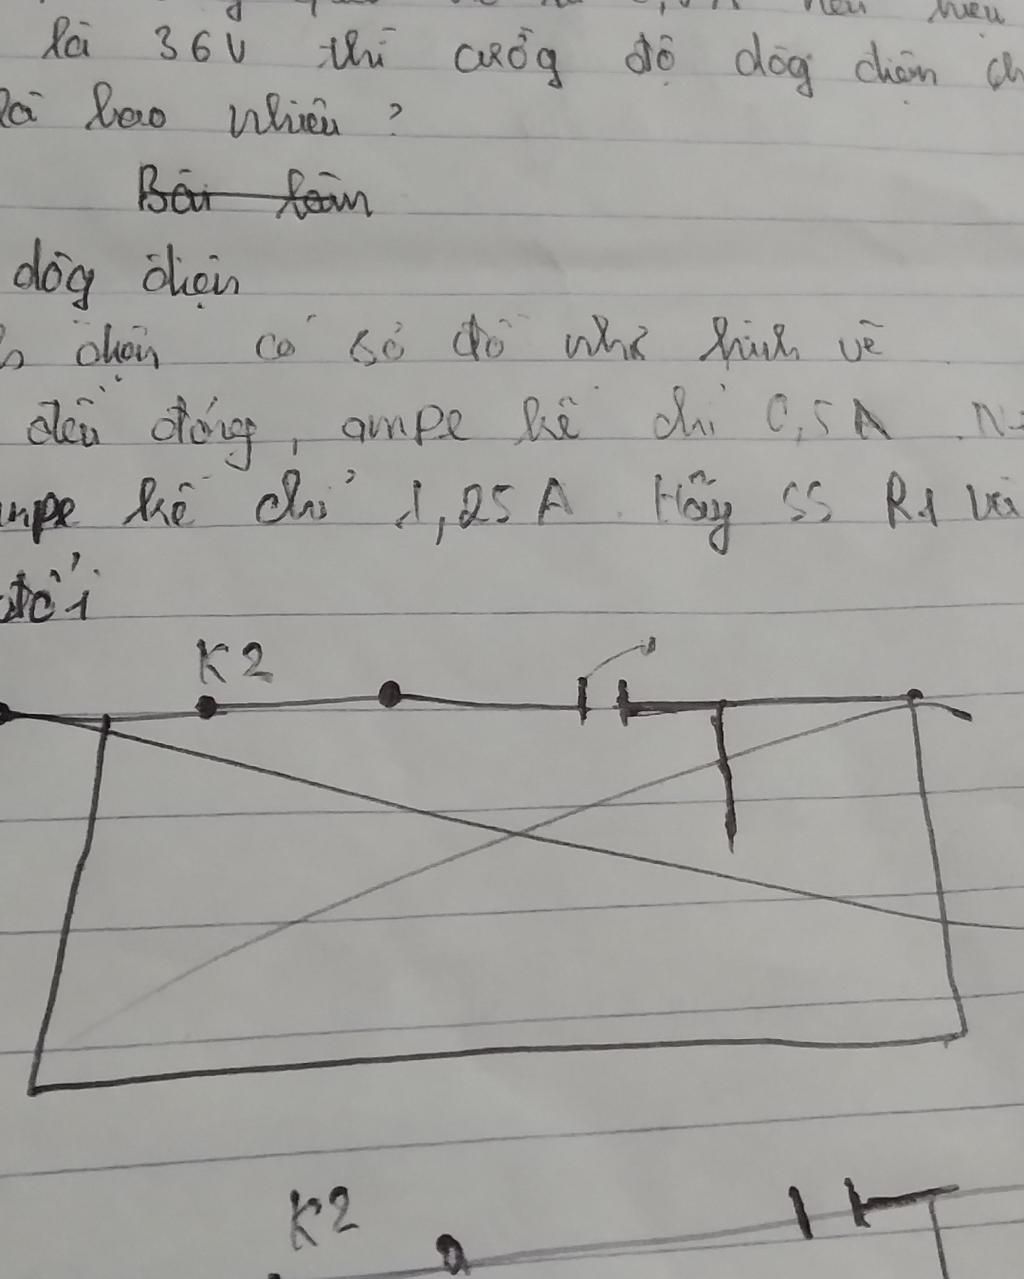 là 36V thì cườg độ dòg điện ch
là bao nhiêu ?
Bài toán
dòg điện
điện có sơ đồ như hình vẽ
đều đóng, ampe kế chỉ 0,5A . N
mpe kế chỉ 1,25A . Hãy SS R1 và
đổi
K2
K2